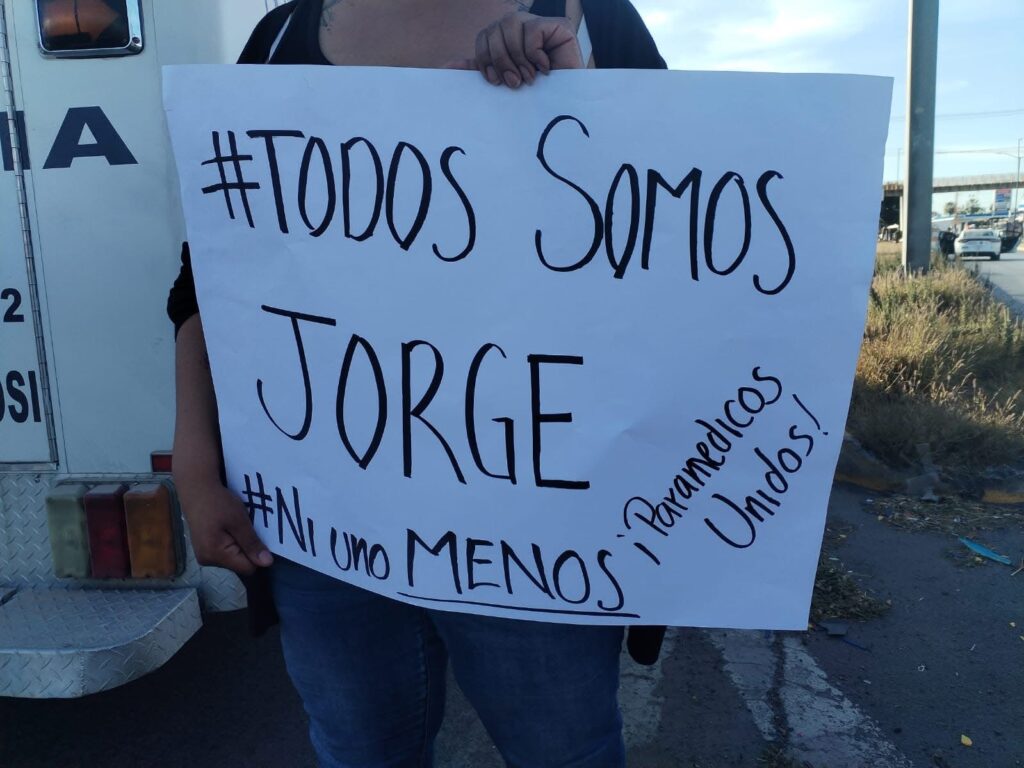 #TODOS SOMOS
JORGE
#Ni uno MENOS
¡Paramedicos
Unidos!
IA
2
OSI